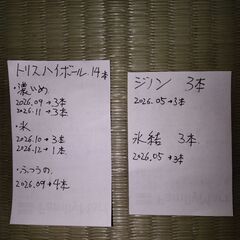 トリスハイボール 14本
・濃いめ
2026.09→3本
2026.11→3本
・氷
2026.10→3本
2026.12→1本
・ふつうの
2026.09→4本
ジノン 3本
2026.05→3本
氷結 3本
2026.05→3本